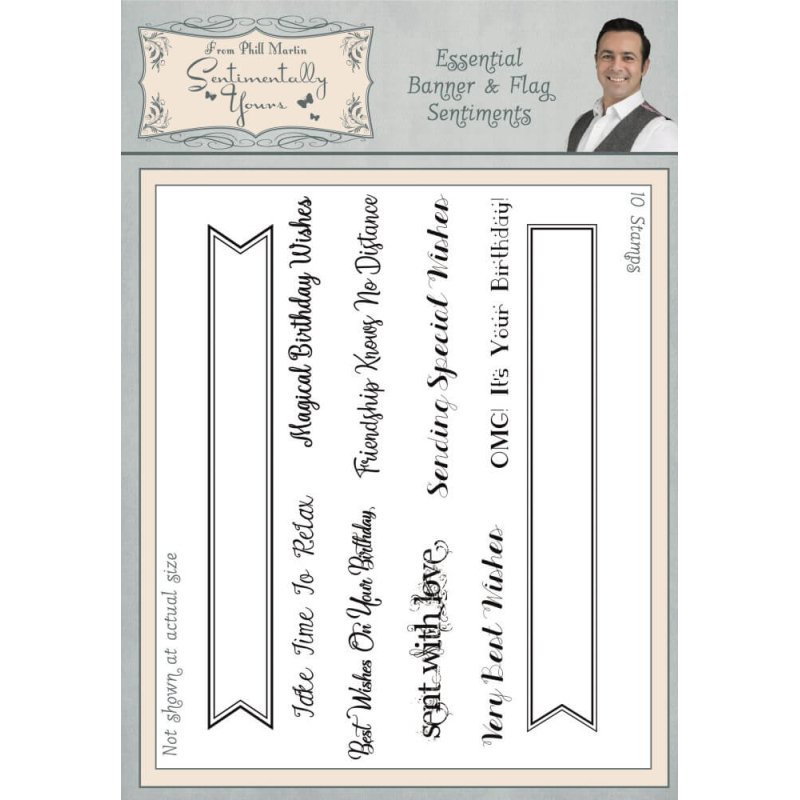 From Phill Martin
Sentimentally
Yours
Essential
Banner & Flag
Sentiments
10 Stamps
Not shown at actual size
Magical Birthday Wishes
Friendship Knows No Distance
Sending Special Wishes
OMG! It's Your Birthday!
Take Time To Relax
Best Wishes On Your Birthday,
sent with love,
Very Best Wishes